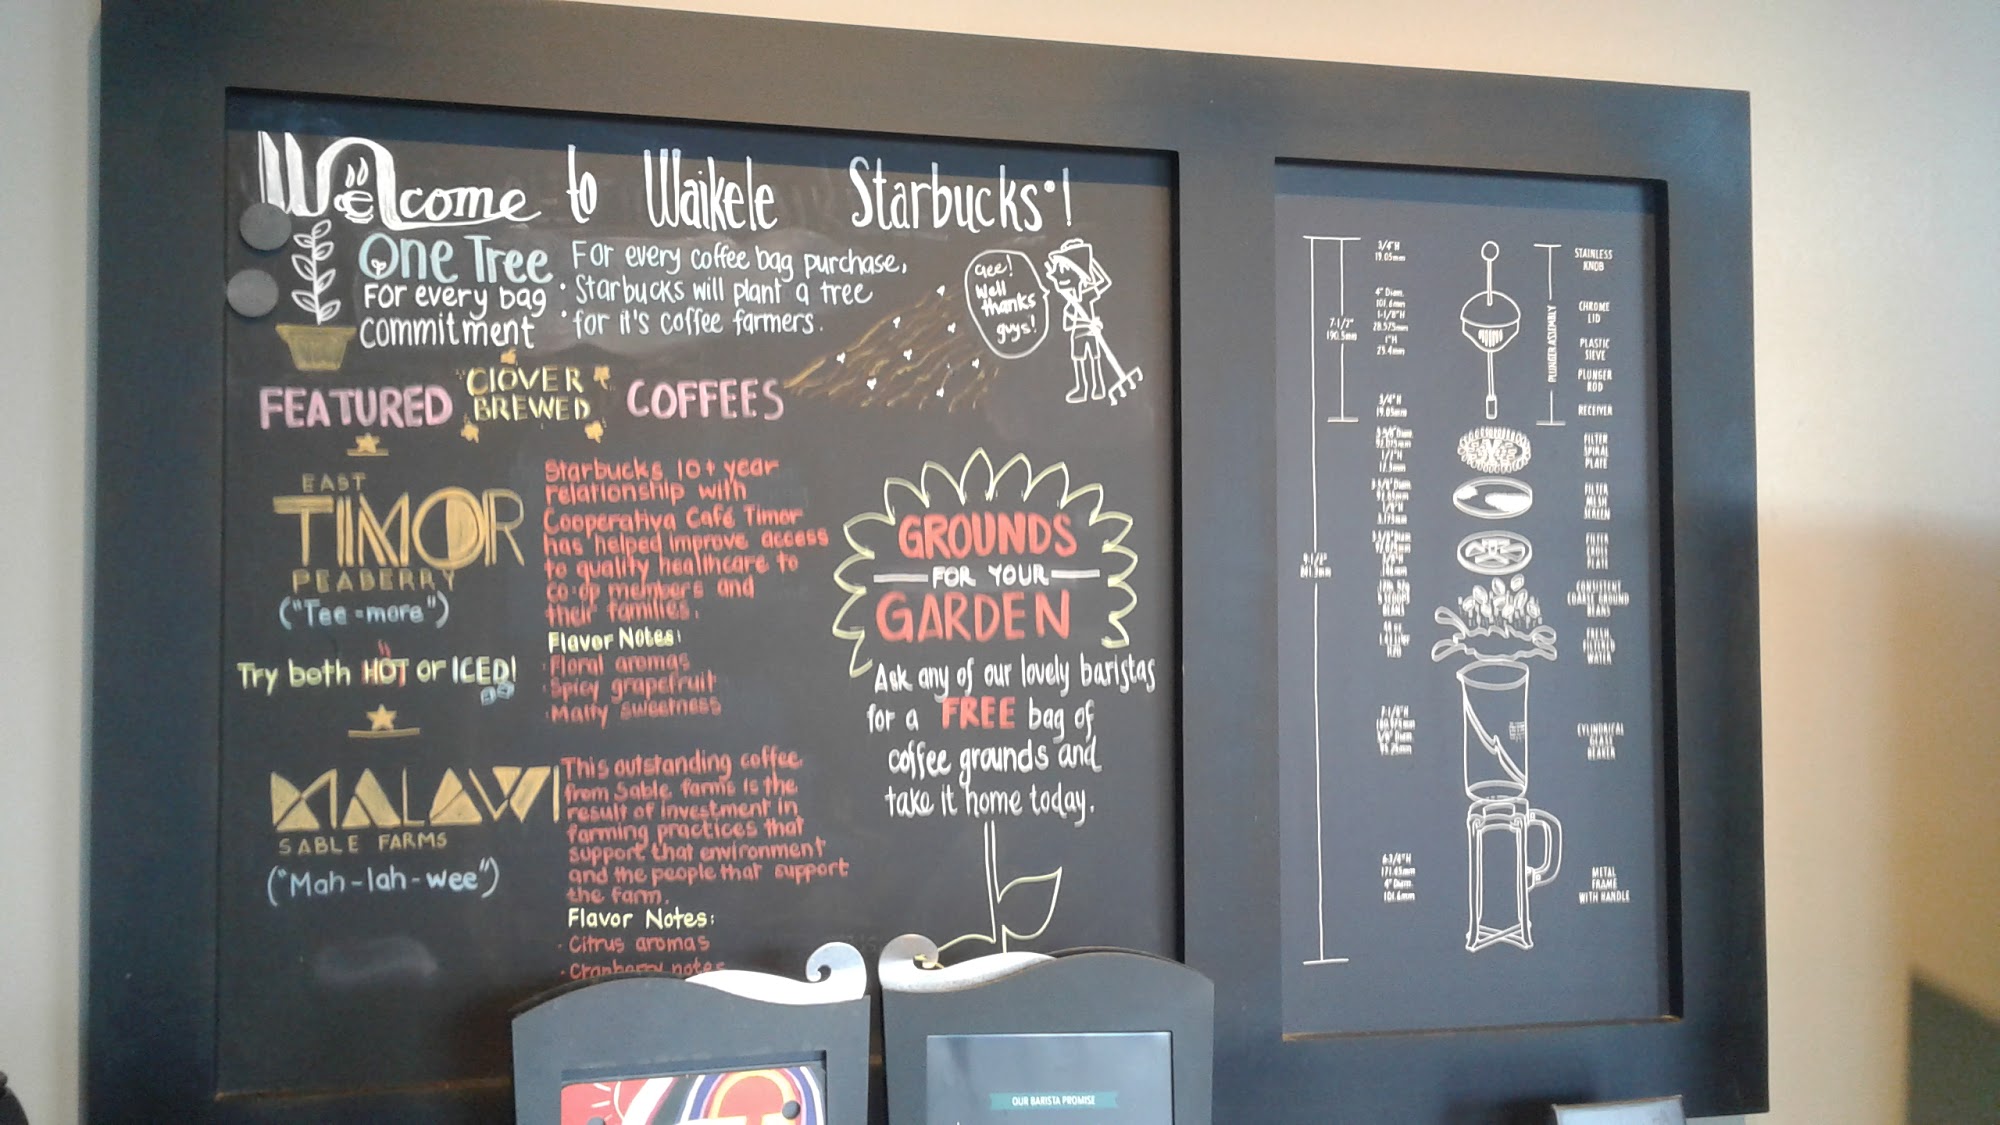 Welcome to Waikele Starbucks!
One Tree
For every bag
commitment
For every coffee bag purchase,
Starbucks will plant a tree
for it's coffee farmers.
Gee!
Well
thanks
guys!
FEATURED CLOVER BREWED COFFEES
EAST
TIMOR
PEABERRY
("Tee-more")
Starbucks 10+ year
relationship with
Cooperativa Café Timor
has helped improve access
to quality healthcare to
co-op members and
their families.
Flavor Notes:
· Floral aromas
· Spicy grapefruit
· Malty sweetness
Try both HOT or ICED!
MALAWI
SABLE FARMS
("Mah-lah-wee")
This outstanding coffee
from Sable farms is the
result of investment in
farming practices that
support that environment
and the people that support
the farm.
Flavor Notes:
· Citrus aromas
· Cranberry notes
GROUNDS
FOR YOUR
GARDEN
Ask any of our lovely baristas
for a FREE bag of
coffee grounds and
take it home today.
OUR BARISTA PROMISE
7-1/2"
190.5mm
9-1/2"
241.3mm
3/4"H
19.05mm
4" Diam.
101.6mm
1-1/8"H
28.575mm
1"H
25.4mm
3/4"H
19.05mm
1/2"H
6-3/4"H
171.45mm
4" Diam.
101.6mm
PLUNGER ASSEMBLY
STAINLESS
KNOB
CHROME
LID
PLASTIC
SIEVE
PLUNGER
ROD
RECEIVER
FILTER
SPIRAL
PLATE
FILTER
MESH
SCREEN
FILTER
CROSS
PLATE
CONSISTENT
COARSE GROUND
BEANS
FRESH
FILTERED
WATER
CYLINDRICAL
GLASS
BEAKER
METAL
FRAME
WITH HANDLE